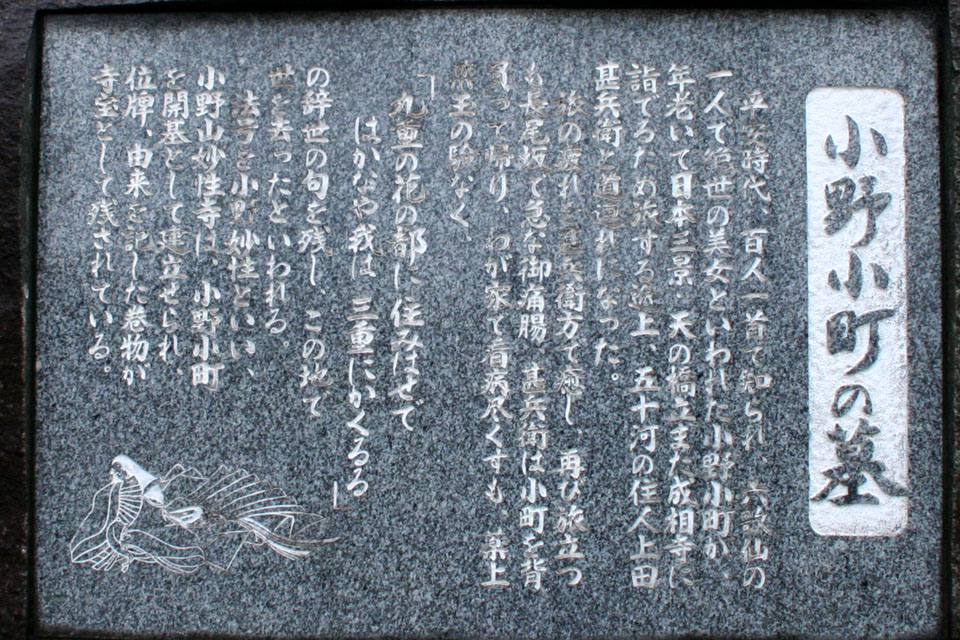 小野小町の墓
平安時代、百人一首で知られ、六歌仙の
一人で絶世の美女といわれた小野小町が、
年老いて日本三景・天の橋立また成相寺に
詣でるため旅する途上、五十河の住人上田
甚兵衛と道連れになった。
旅の疲れを甚兵衛方で癒し、再び旅立つ
も長尾坂で急な御滴腸、甚兵衛は小町を背
負って帰り、わが家で看病尽くすも、薬上
薬王の験なく、
「九重の花の都に住みはせで
はかなや我は 三重にかくるる」
の辞世の句を残し、この地で
世を去ったといわれる。
法号を小野妙性といい、
小野山妙性寺は、小野小町
を開基として建立せられ、
位牌、由来を記した巻物が
寺宝として残されている。